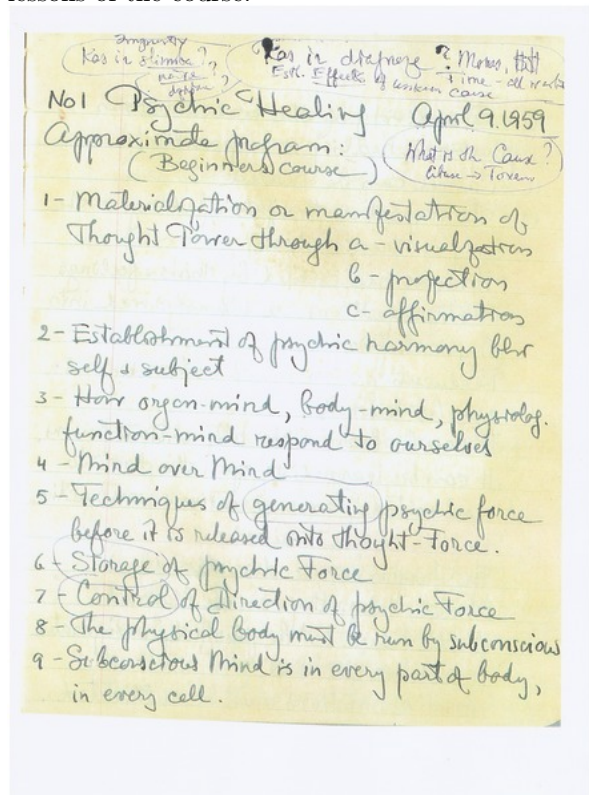 Kas ir
Kas ir diagnoze ?
Estl. Effects of unknown cause
No1 Psychic Healing April 9.1959
Approximate program:
(Beginners course)
What is the Cause?
1- Materialization or manifestation of
Thought Power through a - visualization
b - projection
c- affirmation
2- Establishment of psychic harmony btw
self & subject
3- How organ-mind, body-mind, physiolog.
function-mind respond to ourselves
4- Mind over Mind
5- Techniques of generating psychic force
before it is released onto Thought-Force.
6- Storage of psychic Force
7- Control of Direction of psychic Force
8- The physical body must be run by subconscious
9- Subconscious Mind is in every part of body,
in every cell.